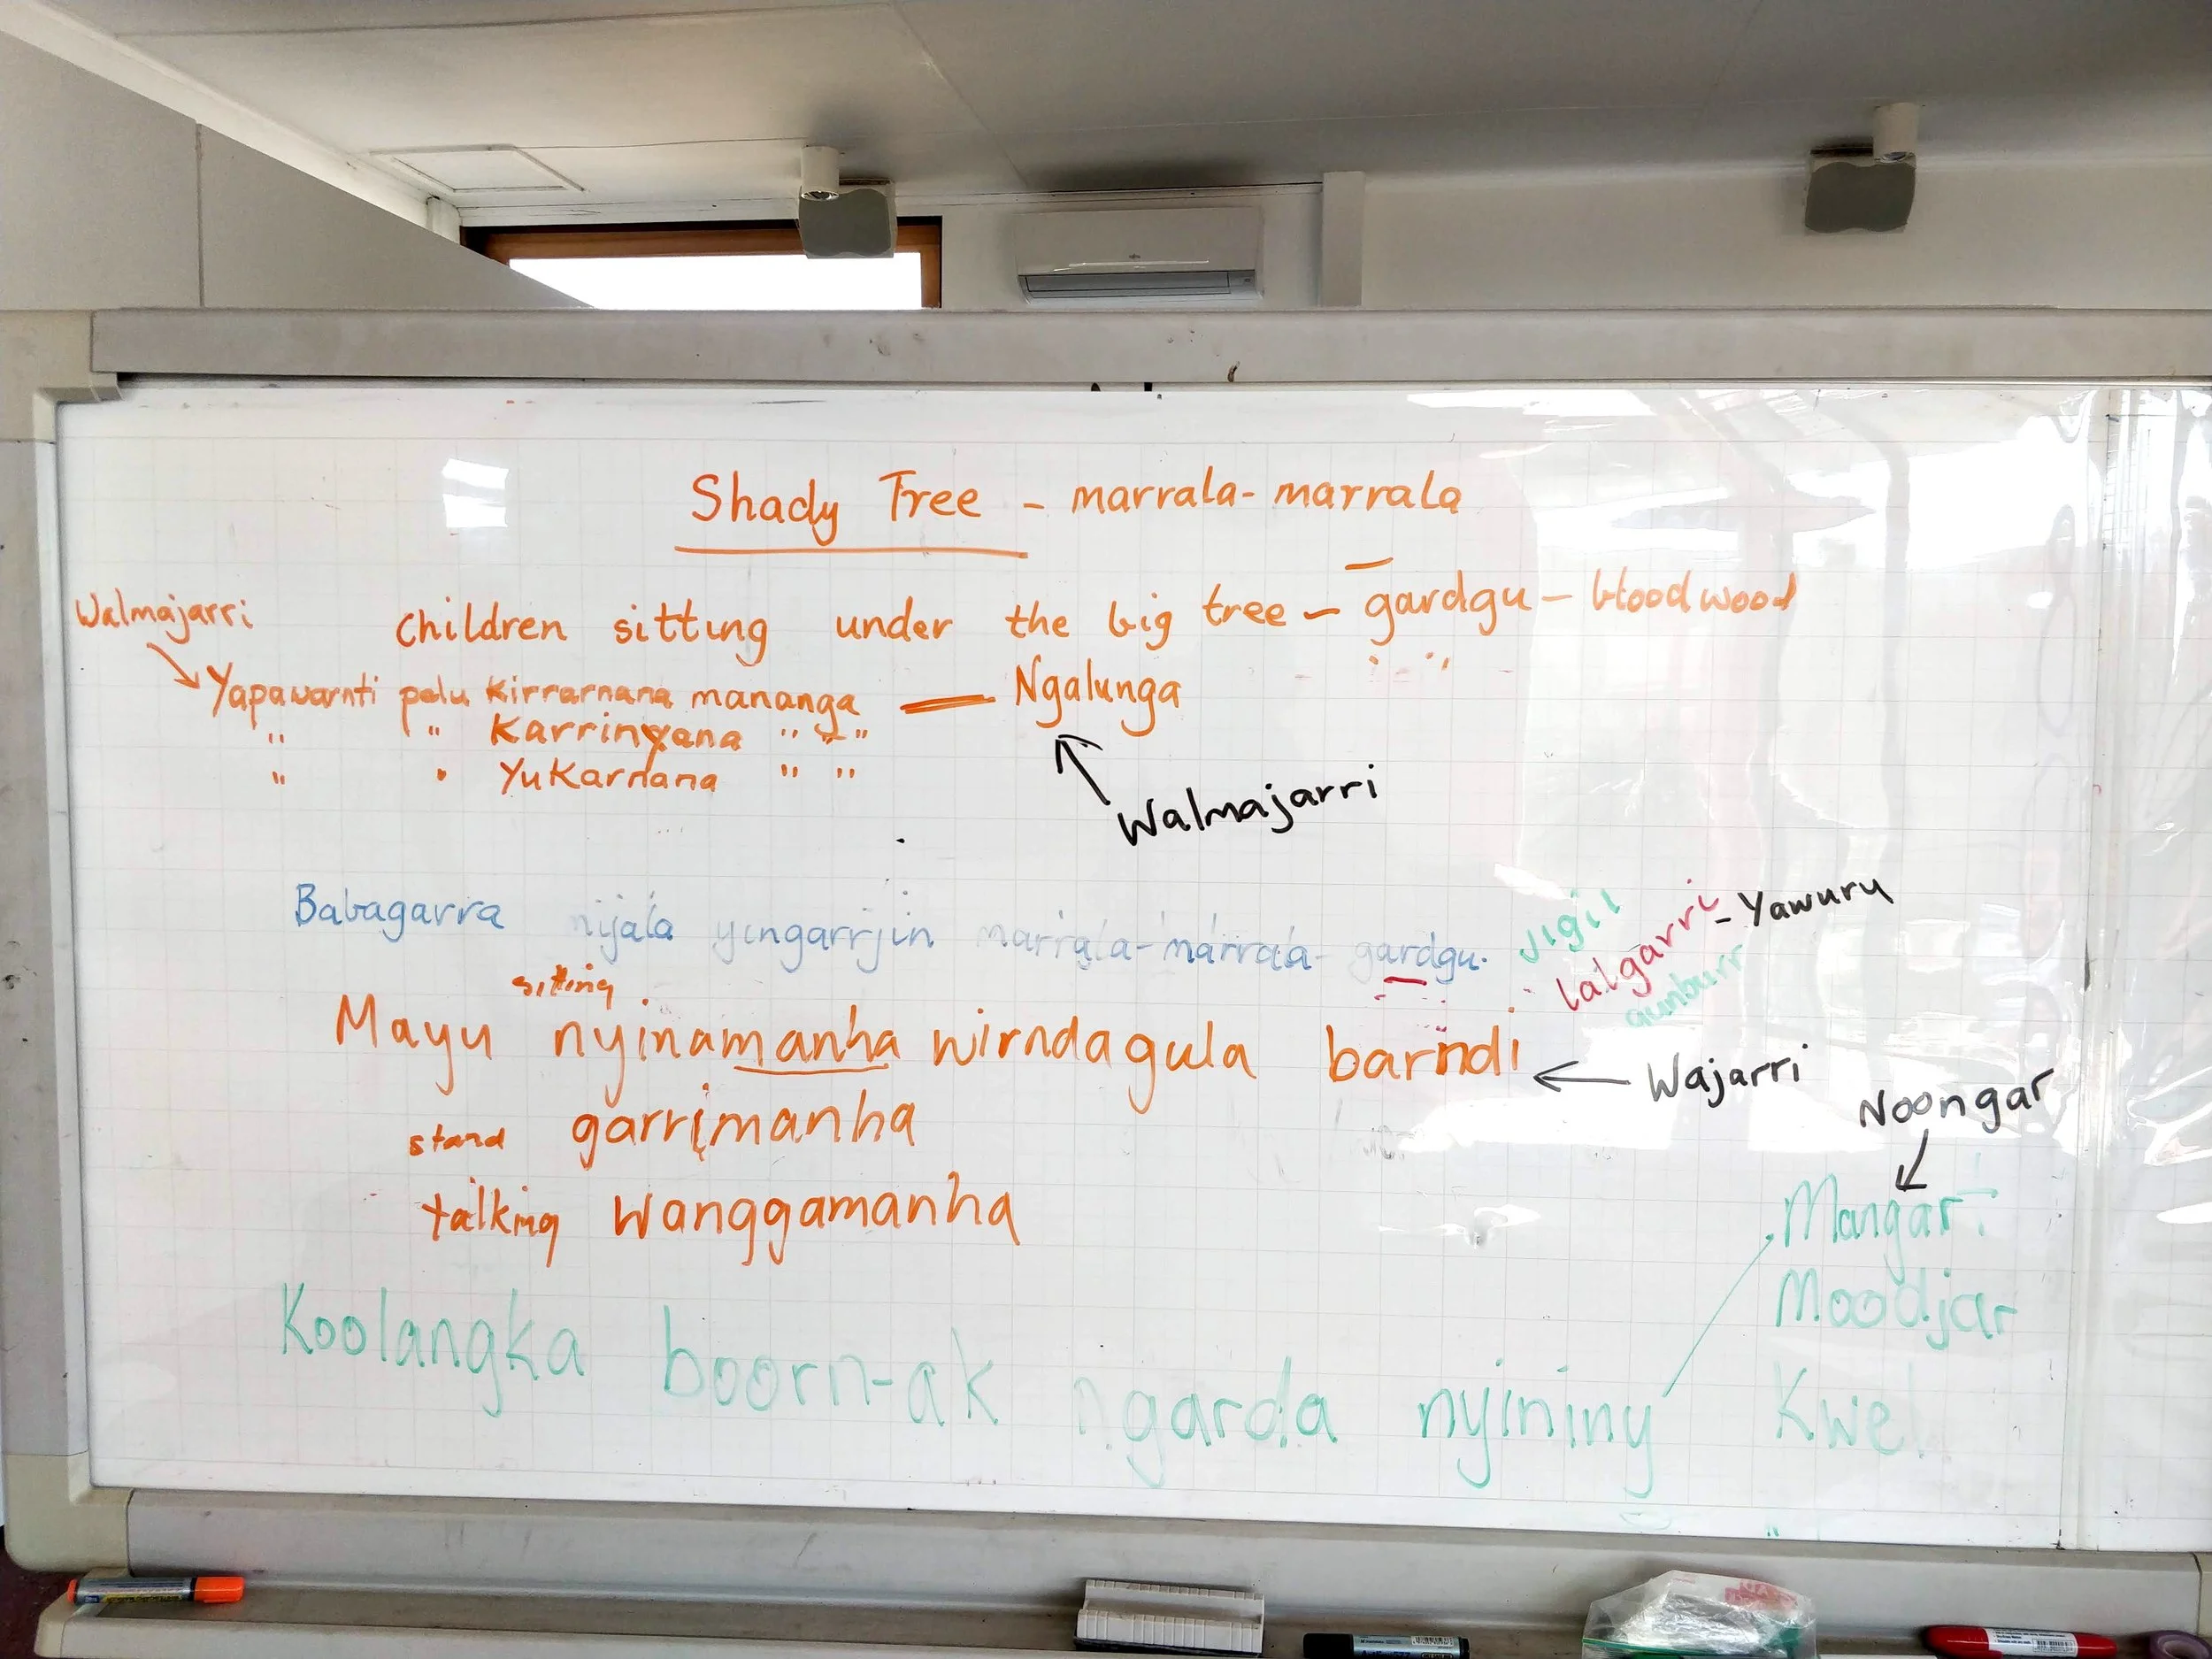 Shady Tree - marrala-marrala
Walmajarri
Children sitting under the big tree - gardgu - bloodwood
Yapawarnti pelu Kirrarnana mananga — Ngalunga
" " Karrinyana " " "
" " Yukarnana " "
Walmajarri
Babagarra nijala yingarrjin marrala-marrala gardgu.
Jigil
lalgarri - Yawuru
gunburr
sitting
Mayu nyinamanha wirndagula barndi
Wajarri
stand garrimanha
talking wanggamanha
Noongar
Mangart
Moodjar
Kwel
Koolangka boorn-ak ngarda nyininy